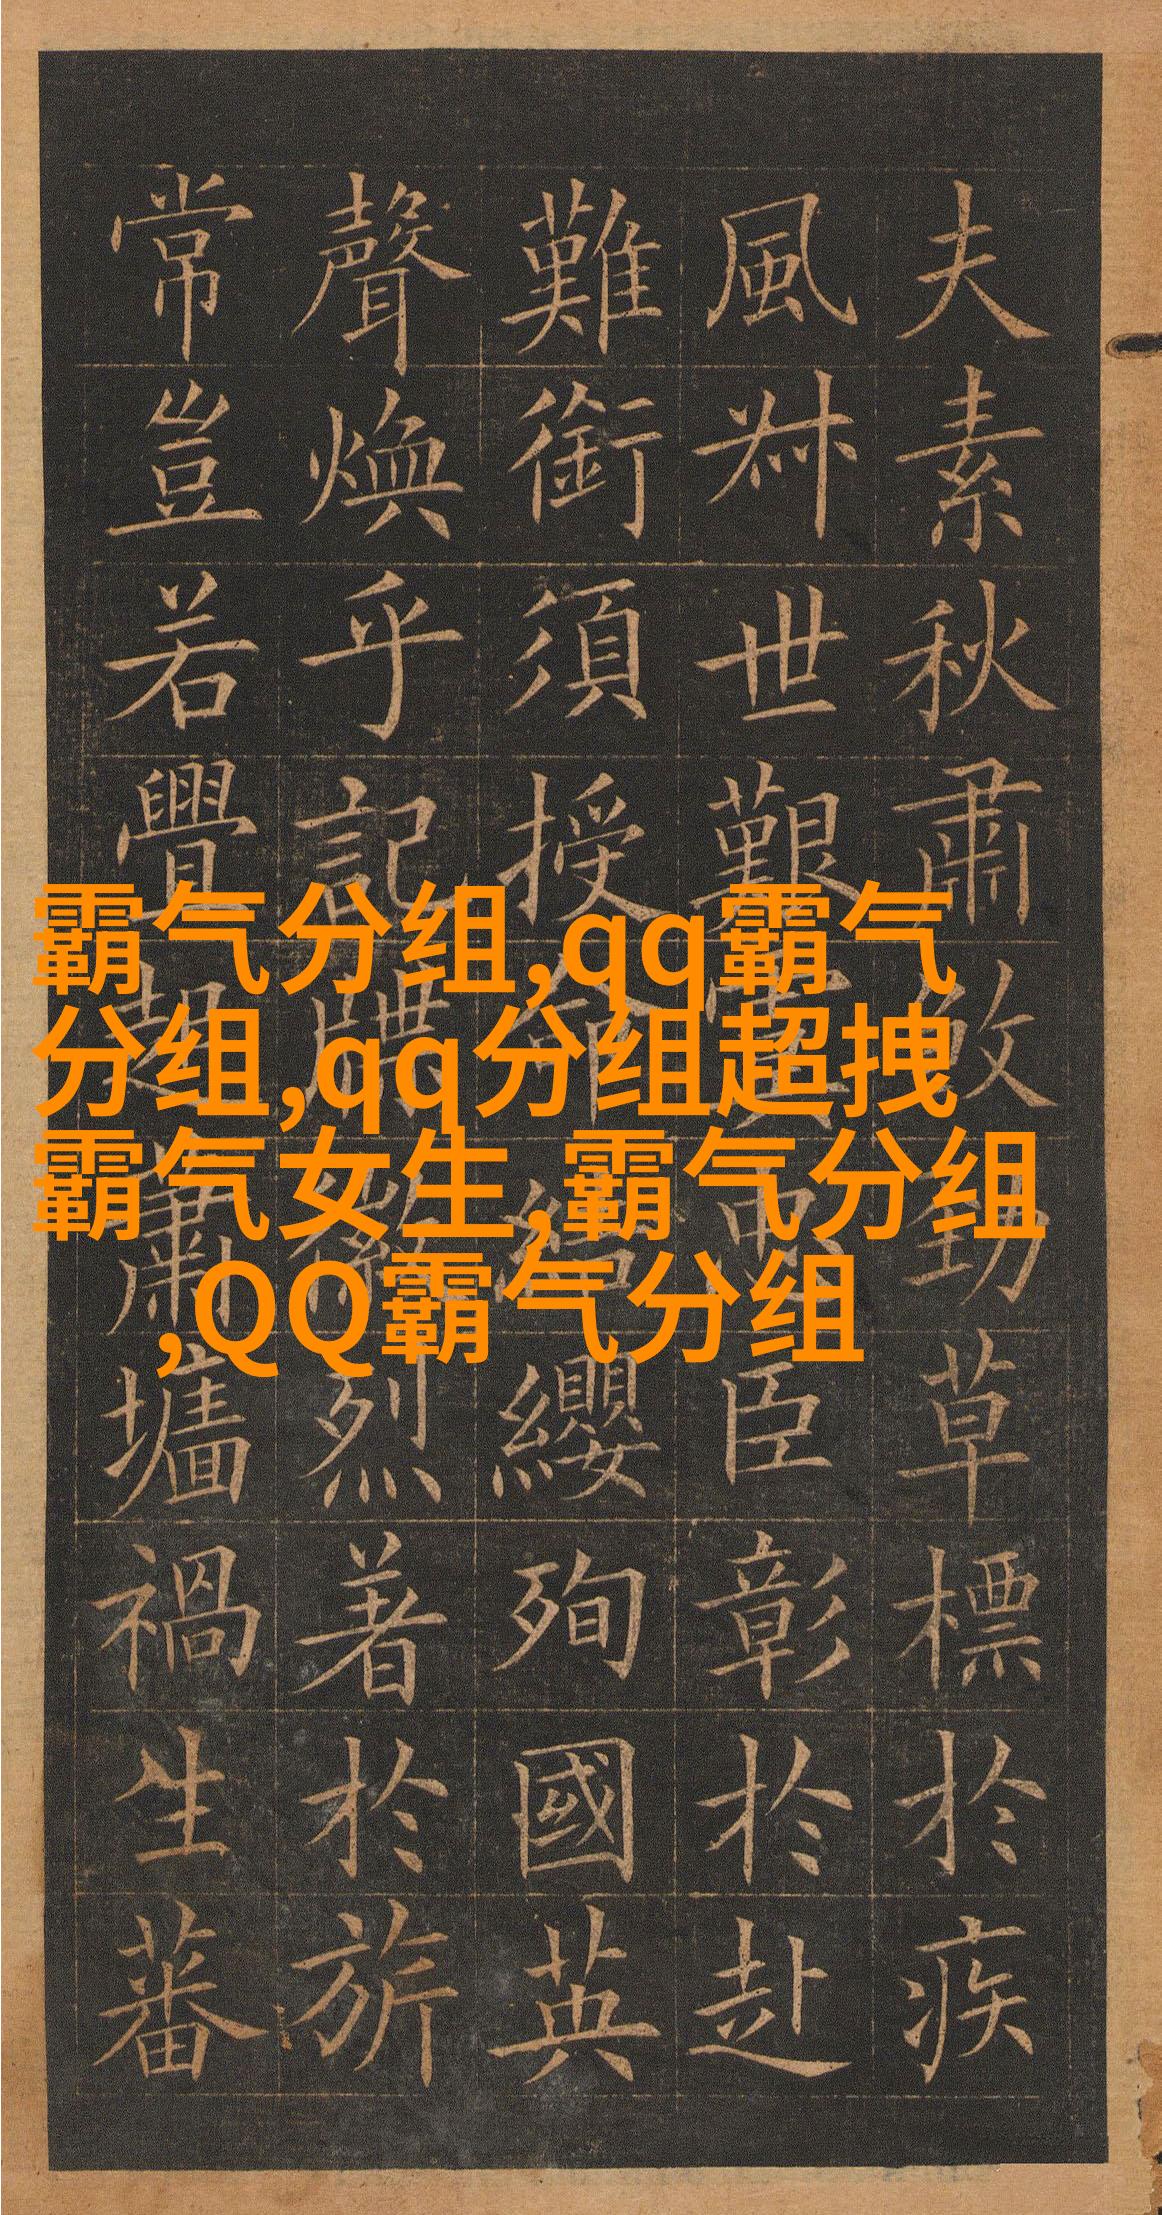 夫素秋肅勁草標於疾
風叔世艱臣彰於赴
難銜須授命結纓殉國英
聲煥乎記烈著於旂
常豈若釁起蕭墻禍生蕃
霸气分组,qq霸气
分组,qq分组超拽
霸气女生,霸气分组
,QQ霸气分组